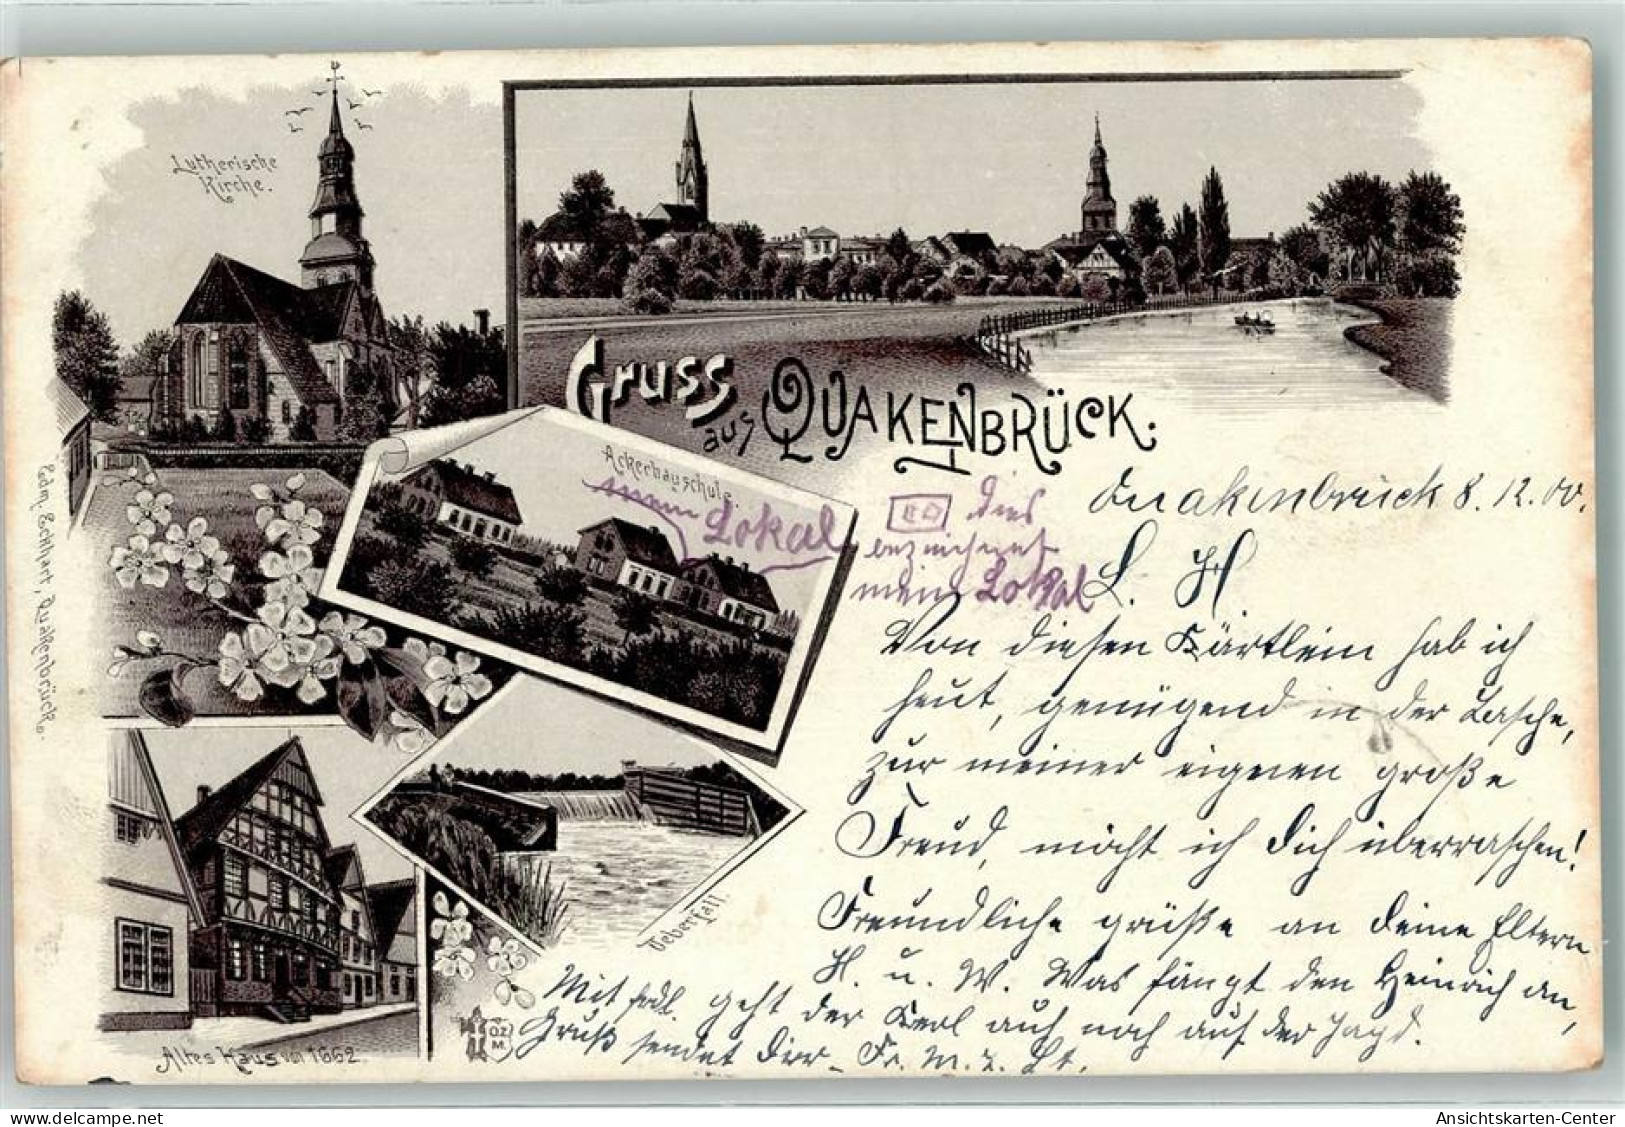 Lutherische
Kirche.
Gruss
aus QUAKENBRÜCK.
Ackerbauschule.
mein Lokal
dies
bezeichnet
mein Lokal
Quakenbrück 8.12.00.
L. H
Von diesen Kärtlein hab ich
heut, genügend in der Tasche,
zur meiner eigenen große
Freud, möcht ich Dich überraschen!
Freundliche grüße an Deine Eltern
H. u. W. Was fängt den Heinrich an,
geht der Kerl auch noch auf der Jagd.
Mit frdl.
Gruß sendet Dir Fr. M. z. Ht.
Edm. Eckhart, Quakenbrück.
Ueberfall.
Altes Haus von 1662.
OZ
M
delcampe.net
Ansichtskarten-Center